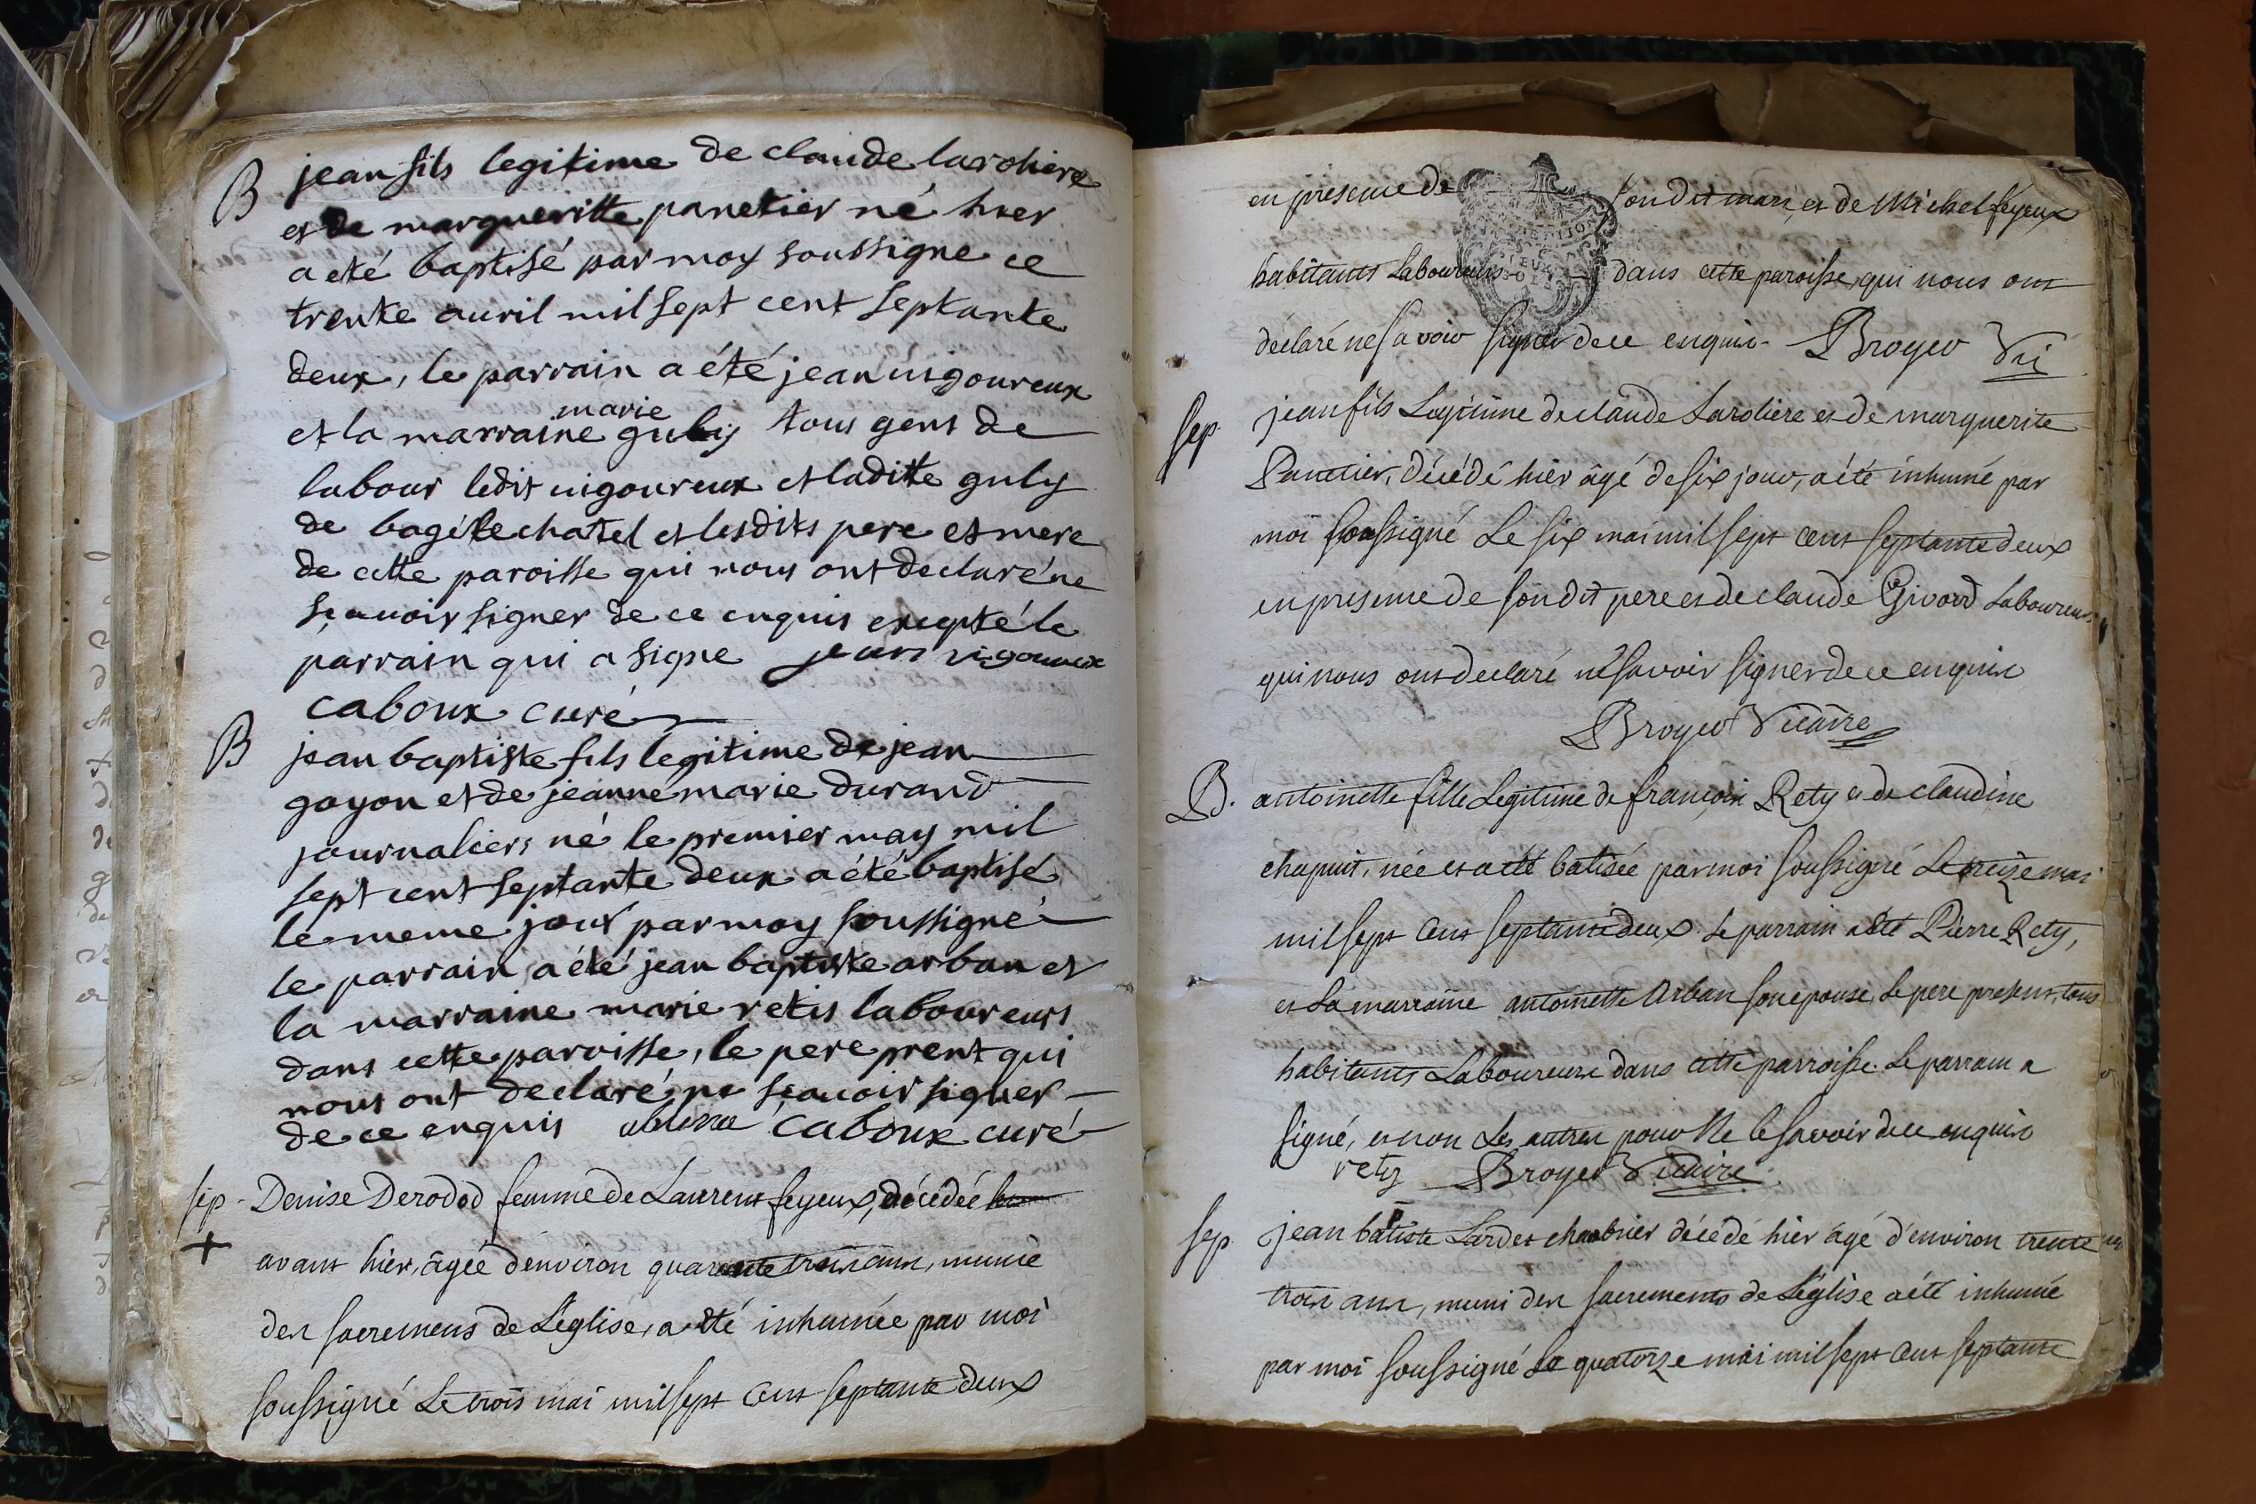 B jean fils legitime de claude laroliere
et de margueritte panetier né hier
a eté baptisé par moy soussigne ce
trente avril mil sept cent septante
deux, le parrain a été jean vigoureux
marie
et la marraine guly tous gens de
labour ledit vigoureux et ladite guly
de bagé le chatel et lesdits pere et mere
de cette paroisse qui nous ont declaré ne
sçavoir signer de ce enquis excepté le
parrain qui a signe jean vigoureux
caboux curé
B jean baptiste fils legitime de jean
goyon et de jeanne marie durand
journaliers né le premier may mil
sept cent septante deux a été baptisé
le meme jour par moy soussigné
le parrain a été jean baptiste arban et
la marraine marie retis laboureurs
dans cette paroisse, le pere prent qui
nous ont declaré ne sçavoir signer
de ce enquis caboux curé
sep. Denise Derodod femme de Laurent feyeux, décédée
avant hier, âgée d'environ quarante trois ans, munie
des sacremens de L'église, a été inhumée par moi
soussigné Le trois mai mil sept cent septante deux
en présence de son dit mari, et de Michel feyeux
habitants Laboureurs dans cette paroisse, qui nous ont
déclaré ne savoir signer de ce enquis. Broyer Vic
sep. jean fils Légitime de claude Laroliere et de marguerite
Panetier, décédé hier âgé de six jours, a été inhumé par
moi soussigné Le six mai mil sept cent septante deux
en presence de son dit pere et de claude Givord Laboureurs
qui nous ont declaré ne savoir signer de ce enquis
Broyer Vicaire
B. antoinette fille Légitime de françois Rety et de claudine
chapuit, née et a été batisée par moi soussigné Le treize mai
mil sept cent septante deux. Le parrain a été Pierre Rety,
et La marraine antoinette Arban son epouse, Le pere present, tous
habitants Laboureurs dans cette parroisse. Le parrain a
signé, et non Les autres pour Ne le savoir de ce enquis
rety Broyer Vicaire.
sep. jean batiste Lardet charbnier décédé hier âgé d'environ trente
trois ans, muni des sacrements de L'église a été inhumé
par moi soussigné Le quatorze mai mil sept cent septante